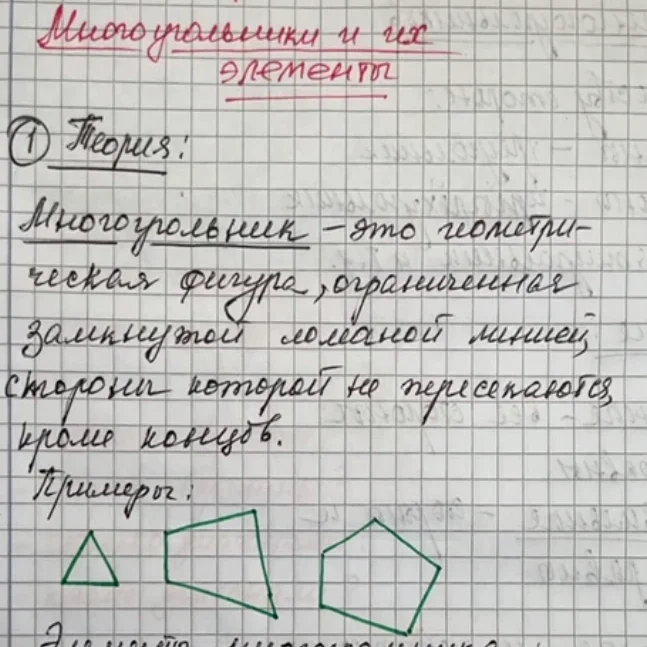 Многоугольники и их
элементы
① Теория:
Многоугольник – это геометри-
ческая фигура, ограниченная
замкнутой ломаной линией,
стороны которой не пересекаются,
кроме концов.
Примеры:
Элементы многоугольника